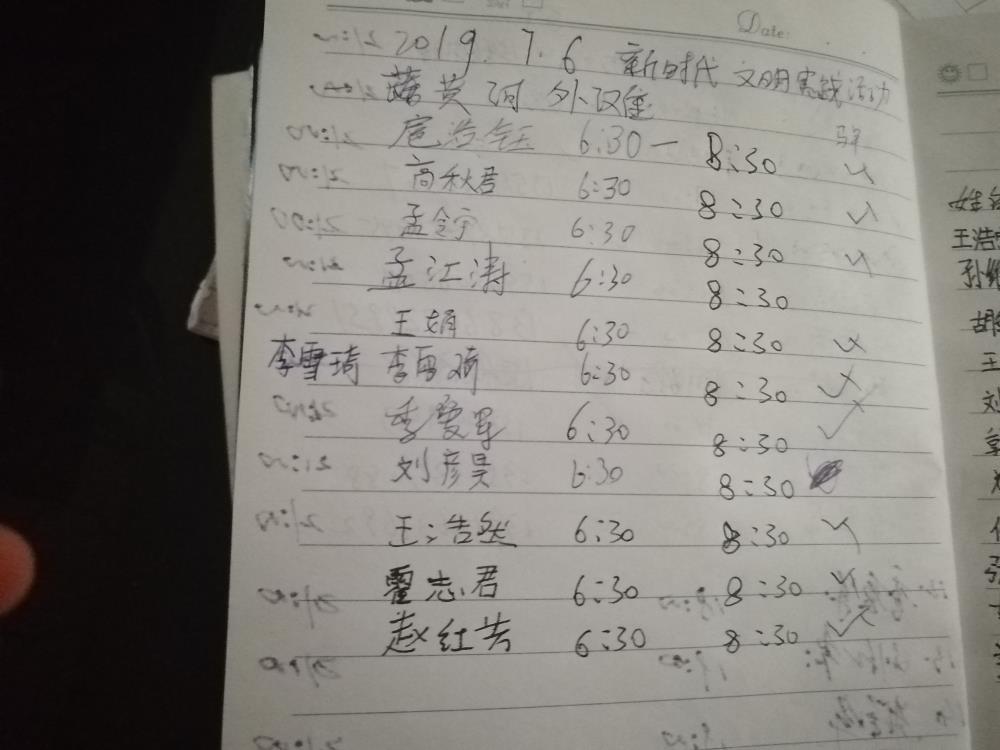 Date:
2019.7.6 新时代文明实践活动
黄河外
扈浩钰 6:30— 8:30
高秋君 6:30 8:30
孟令宇 6:30 8:30
孟江涛 6:30 8:30
王娟 6:30 8:30
李雪琦 李雪琦 6:30 8:30
季爱军 6:30 8:30
刘彦昊 6:30 8:30
王浩然 6:30 8:30
霍志君 6:30 8:30
赵红 6:30 8:30
王浩
孙
胡
王
刘